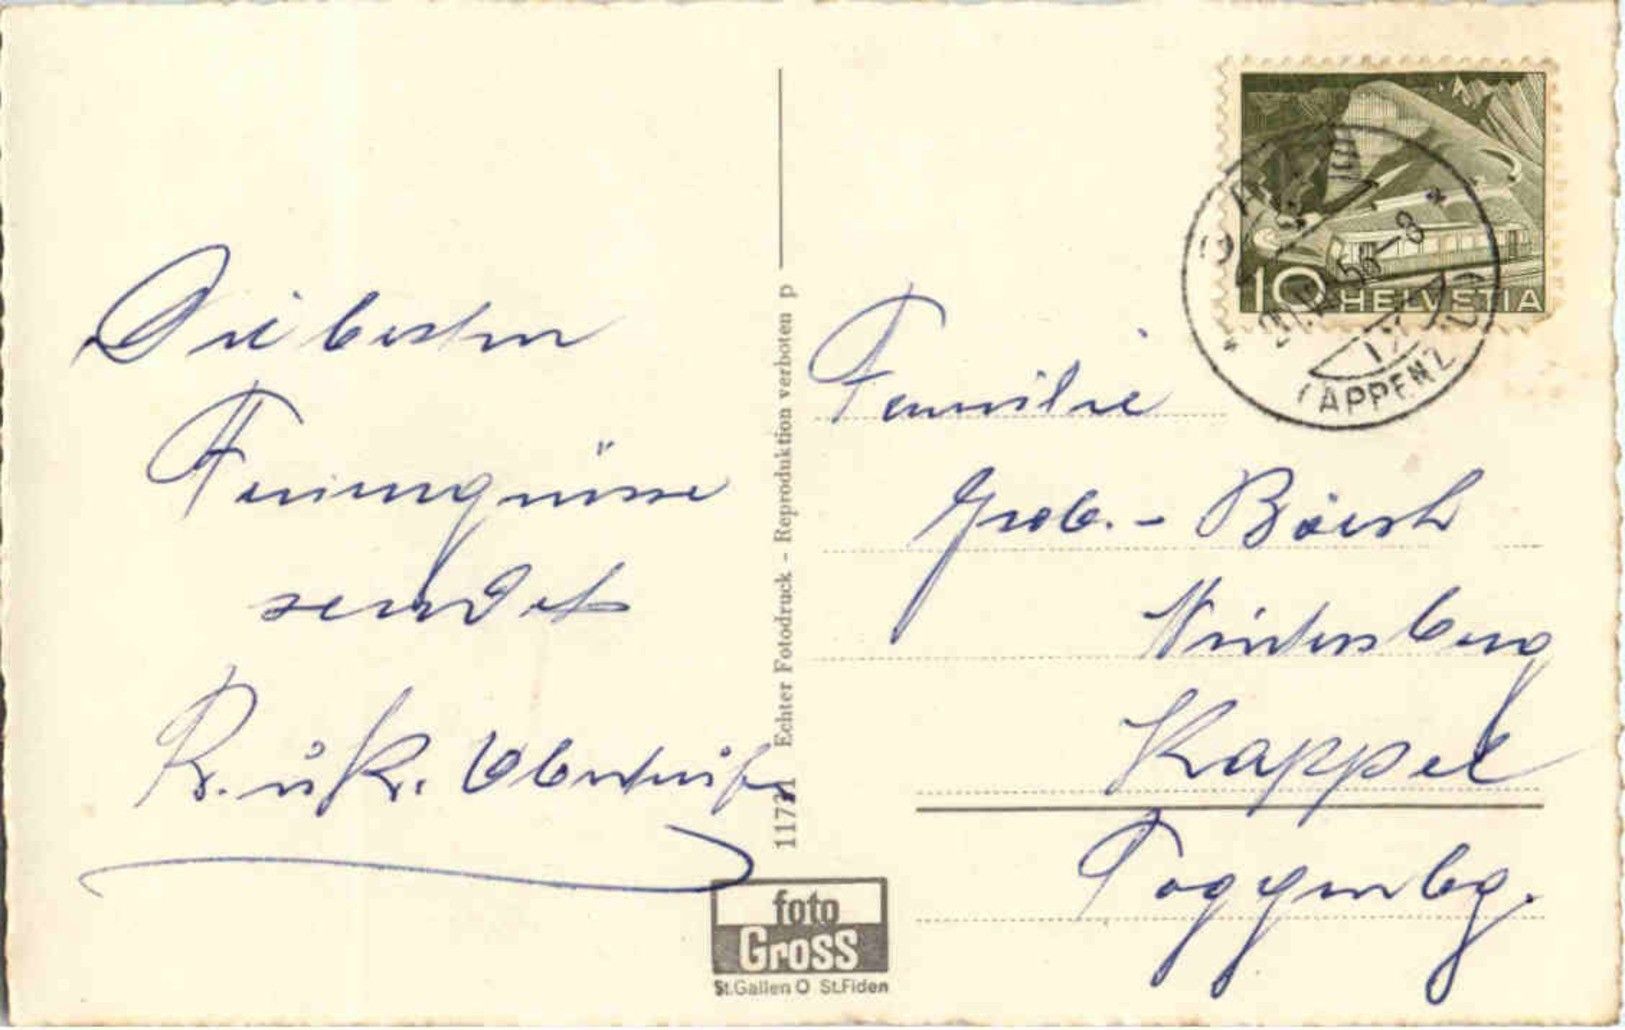 Die besten
Feriengrüsse
sendet
R. u. K.
Familie
Grob. - Bösch
Wintersberg
Kappel
Toggenbg.
11731 Echter Fotodruck - Reproduktion verboten p
foto
Gross
St.Gallen O St.Fiden
10 HELVETIA
-8
(APPENZ